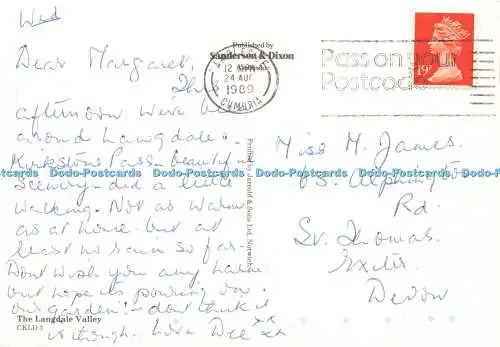 Wed
Dear Margaret,
This
afternoon we've be
around Langdale &
Kirkstone Pass - beautiful
Scenery - did a little
walking. Not as warm
as at home but at
least no rain so far.
Dont wish you any harm
but hope its pouring on
our garden! - dont think it
is though. Love Dee xx
The Langdale Valley
CKLD 3
Published by
Sanderson & Dixon
Ambleside
12
24 AUG
1989
CUMBRIA
Pass on your
Postcode
19P
Printed by Jarrold & Sons Ltd, Norwich
Miss M. James.
Alphington
Rd.
St. Thomas.
Exeter
Devon
Dodo-Postcards Dodo-Postcards Dodo-Postcards Dodo-Postcards